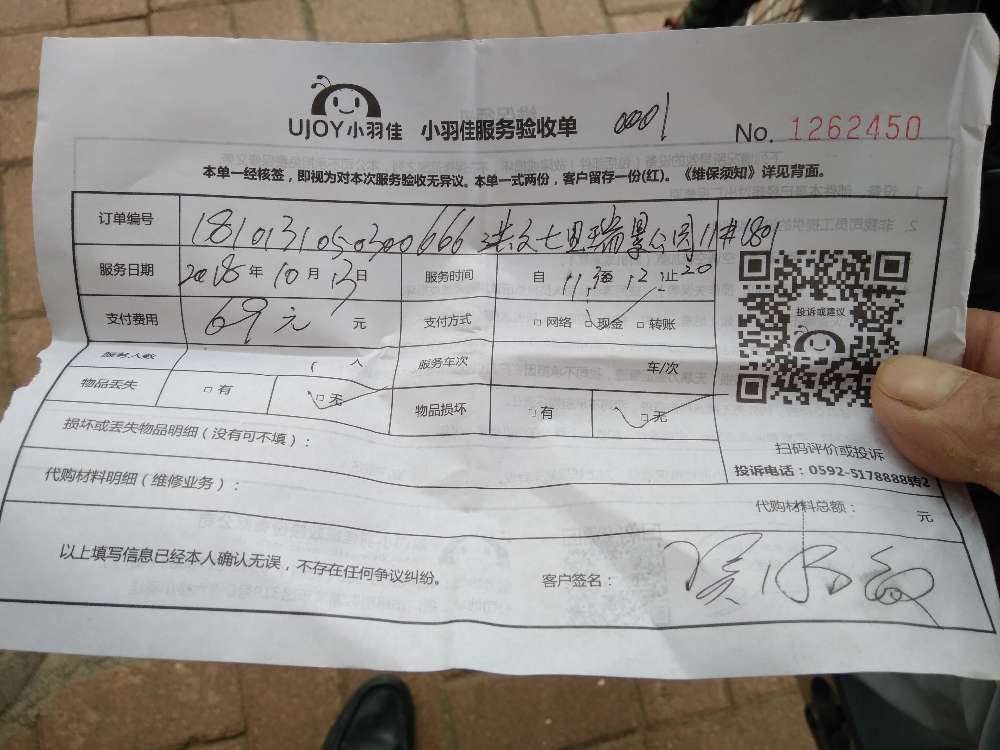 UJOY小羽佳 小羽佳服务验收单 0001 No. 1262450
本单一经核签，即视为对本次服务验收无异议。本单一式两份，客户留存一份(红)。《维保须知》详见背面。
订单编号 瑞景公园11#1801
服务日期 2018年10月13日 服务时间 自 止
支付费用 69元 元 支付方式 □网络 □现金 □转账
投诉或建议
服务人数 1 人 服务车次 车/次
物品丢失 □有 □无 物品损坏 □有 □无
损坏或丢失物品明细（没有可不填）：
扫码评价或投诉
投诉电话：0592-5178888转2
代购材料明细（维修业务）：
代购材料总额： 元
以上填写信息已经本人确认无误，不存在任何争议纠纷。 客户签名：